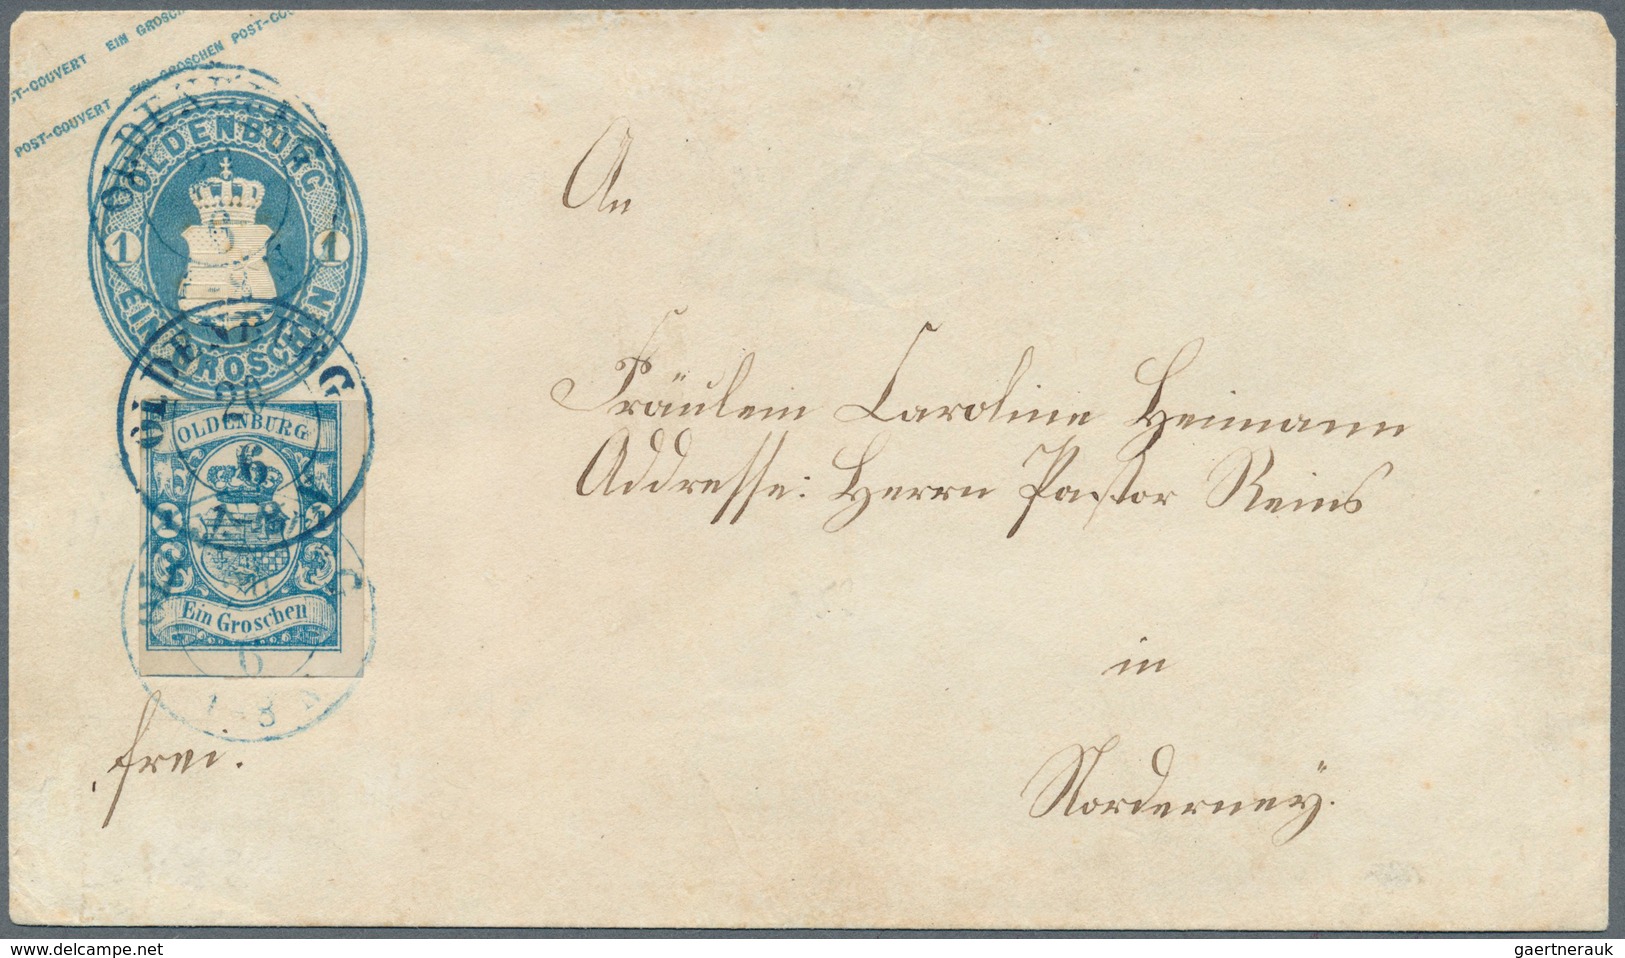 POST-COUVERT EIN GROSCHEN
POST-COUVERT EIN GROSCHEN POST-COUVERT
OLDENBURG
OLDENBURG
6
1 1
EIN GROSCHEN
OLDENBURG
20
6
7-8
OLDENBURG
1 1
Ein Groschen
6
7-8
An
Fräulein Caroline Heimann
Addresse: Herrn Pastor Reins
in
Norderney.
frei.
www.delcampe.net
gaertnerauk